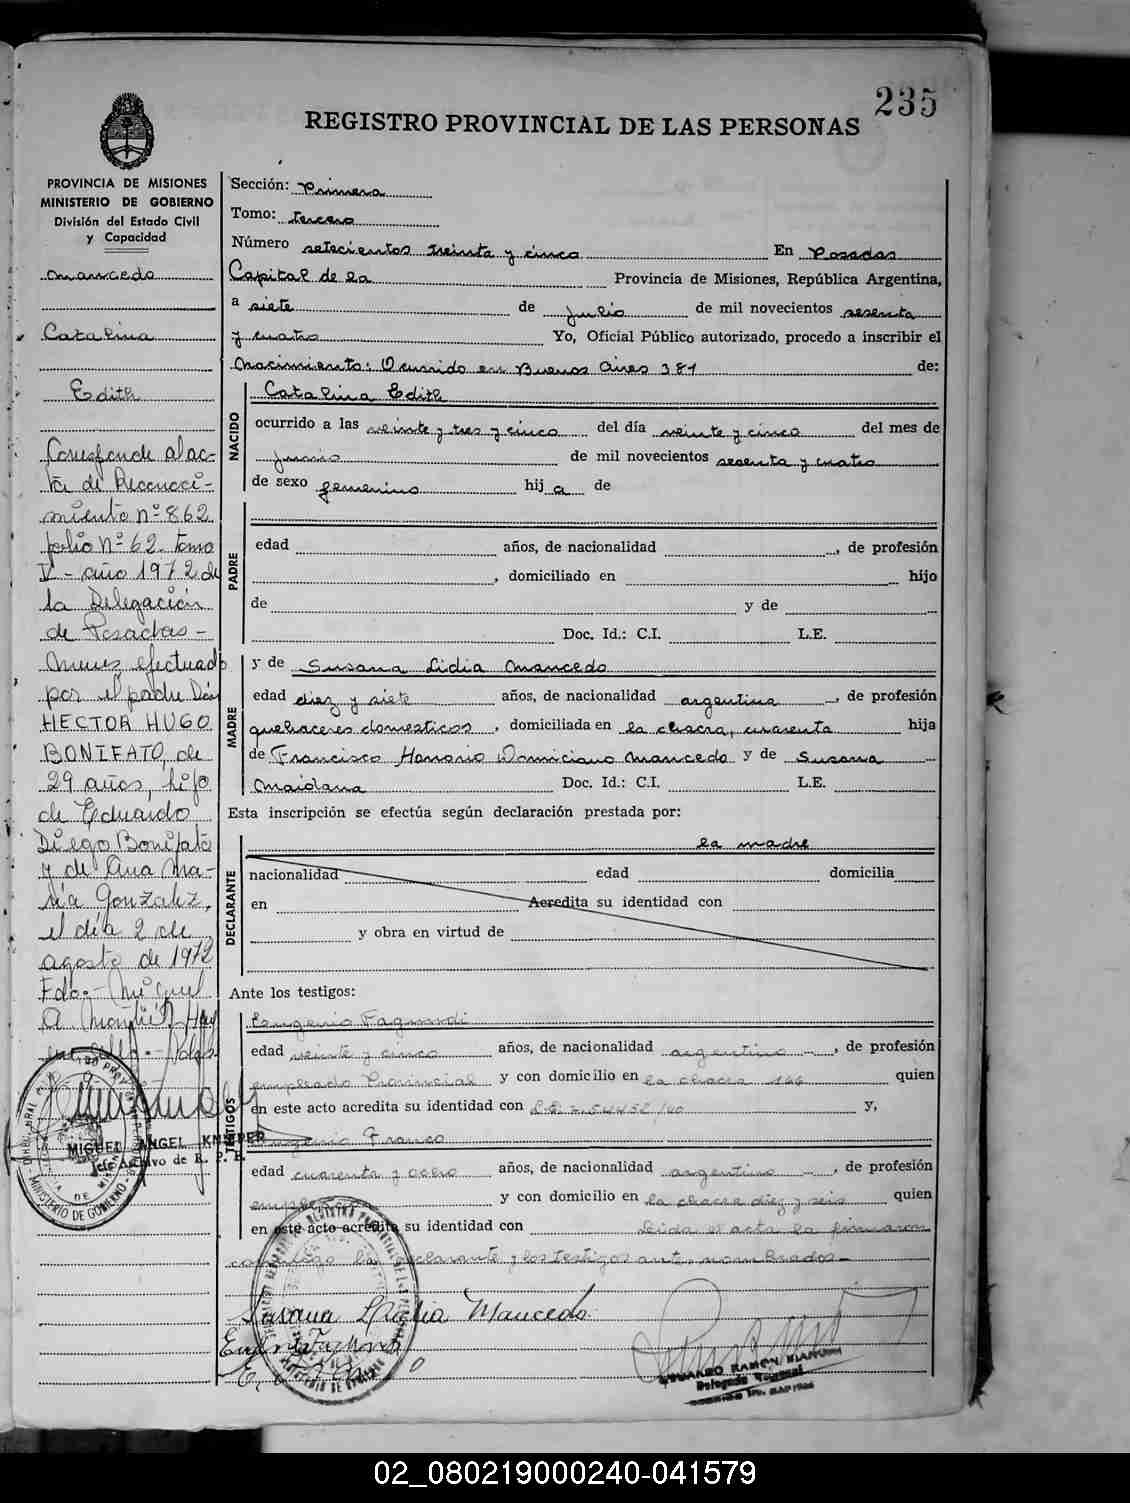 235
REGISTRO PROVINCIAL DE LAS PERSONAS
PROVINCIA DE MISIONES
MINISTERIO DE GOBIERNO
División del Estado Civil
y Capacidad
Mancedo
Catalina
Edith
Corresponde al ac-
ta de Reconoci-
miento nº 862
folio nº 62 tomo
V - año 1972 de
la Delegación
de Posadas -
efectuado
por el padre Don
HECTOR HUGO
BONIFATO, de
29 años, hijo
de Eduardo
Diego Bonifato
y de Ana Ma-
ría Gonzalez,
el día 2 de
agosto de 1972
Fdo.- Miguel
A. Hay
MIGUEL ANGEL
Jefe Archivo de R. P. P.
MINISTERIO DE GOBIERNO
Sección: Primera
Tomo: tercero
Número setecientos treinta y cinco En Posadas
Capital de la Provincia de Misiones, República Argentina,
a siete de julio de mil novecientos sesenta
y cuatro Yo, Oficial Público autorizado, procedo a inscribir el
Nacimiento: Ocurrido en Buenos Aires 381 de:
NACIDO
Catalina Edith
ocurrido a las veinte y tres y cinco del día veinte y cinco del mes de
junio de mil novecientos sesenta y cuatro
de sexo femenino hij a de
PADRE
edad años, de nacionalidad , de profesión
, domiciliado en hijo
de y de
Doc. Id.: C.I. L.E.
MADRE
y de Susana Lidia Mancedo
edad diez y siete años, de nacionalidad argentina , de profesión
quehaceres domesticos , domiciliada en la chacra, cuarenta hija
de Francisco Honorio Domiciano Mancedo y de Susana
Maidana Doc. Id.: C.I. L.E.
Esta inscripción se efectúa según declaración prestada por:
la madre
DECLARANTE
nacionalidad edad domicilia
en Acredita su identidad con
y obra en virtud de
Ante los testigos:
TESTIGOS
Eugenio
edad veinte y cinco años, de nacionalidad argentino , de profesión
empleado Provincial y con domicilio en la chacra 146 quien
en este acto acredita su identidad con y,
Franco
edad cuarenta y ocho años, de nacionalidad argentino , de profesión
empleado y con domicilio en la chacra diez y seis quien
en este acto acredita su identidad con Leida el acta la firmaron
conmigo la declarante y los testigos antes nombrados-
Susana Lidia Mancedo
EDUARDO RAMON
Delegado Regional
02_080219000240-041579